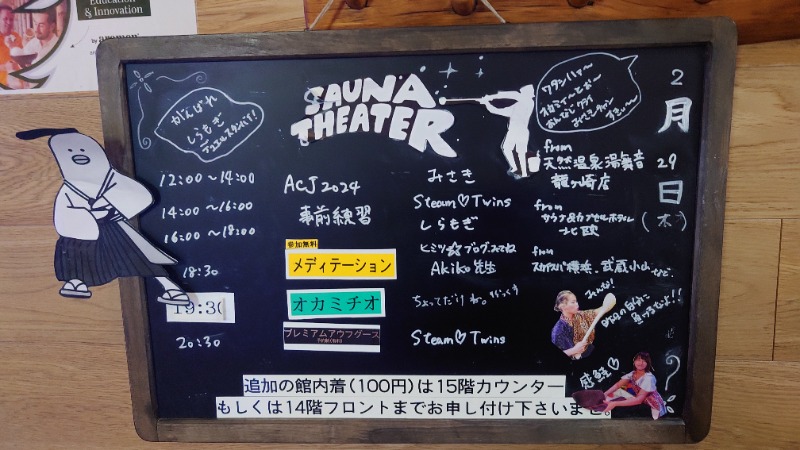 Education
& Innovation
by aroman
がんばれ
しらもぎ
SAUNA
THEATER
2
月
29
日
(木)
12:00～14:00
ACJ 2024
事前練習
みさき
from
天然温泉湯舞音
龍ヶ崎店
14:00～16:00
Steam♡Twins
from
サウナ&カプセルホテル
北欧
16:00～18:00
しらもぎ
ヒミツ☆ブログみてね
from
スカイスパ横浜、武蔵小山など
18:30
参加無料
メディテーション
Akiko 先生
19:30
オカミチオ
20:30
プレミアムアウフグース
Steam♡Twins
みんな!
感謝♡
追加の館内着(100円)は15階カウンター
もしくは14階フロントまでお申し付け下さいませ。